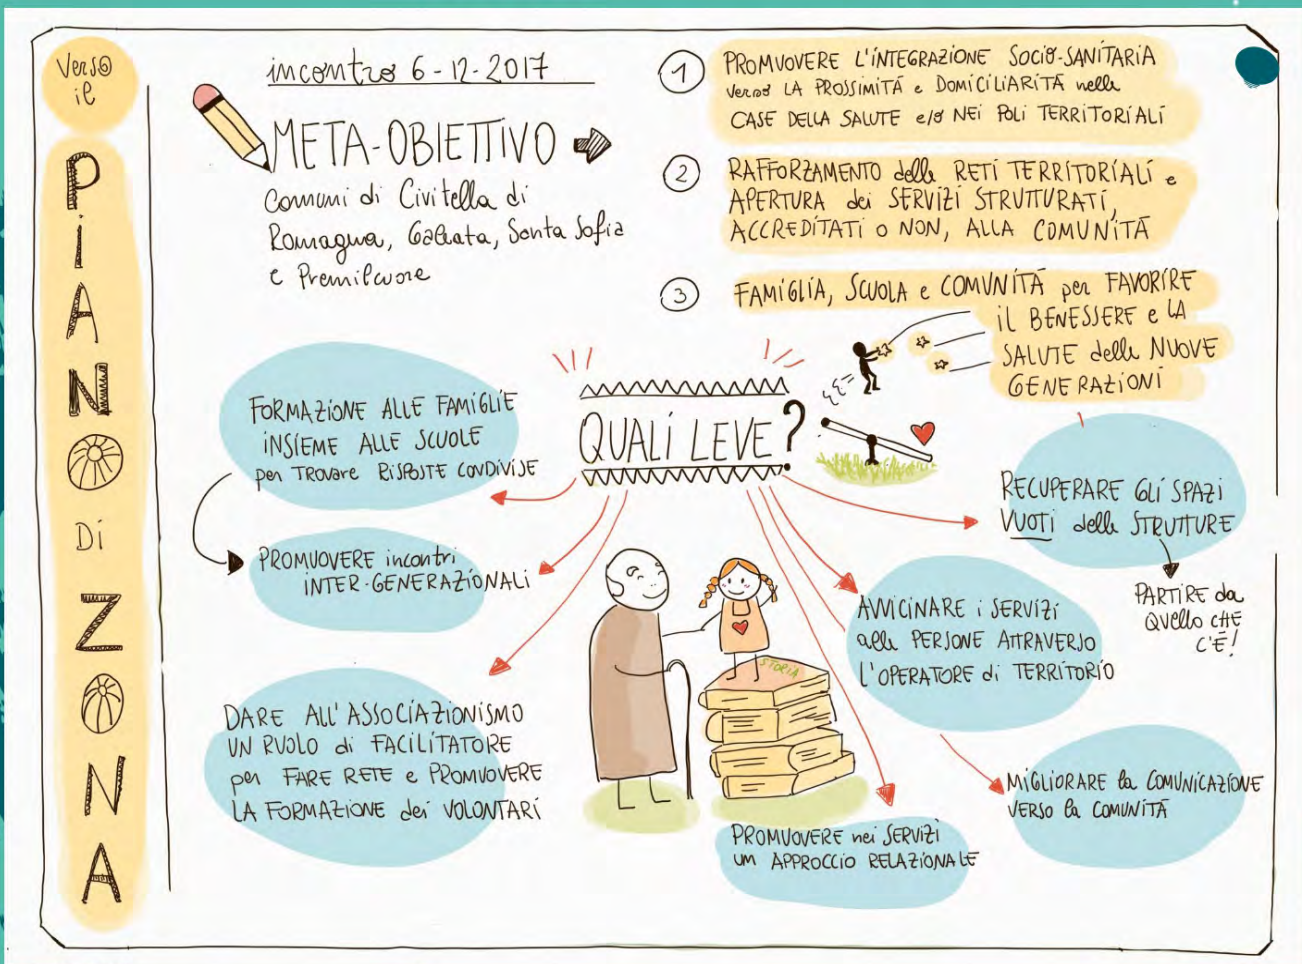 Verso
il
PIANO
Di
ZONA
incontro 6-12-2017
META-OBIETTIVO
Comuni di Civitella di
Romagna, Galeata, Santa Sofia
e Premilcuore
1 PROMUOVERE L'INTEGRAZIONE SOCIO-SANITARIA
verso LA PROSSIMITÀ e DOMICILIARITÀ nelle
CASE DELLA SALUTE e/o NEI POLI TERRITORIALI
2 RAFFORZAMENTO delle RETI TERRITORIALI e
APERTURA dei SERVIZI STRUTTURATI,
ACCREDITATI O NON, ALLA COMUNITÀ
3 FAMIGLIA, SCUOLA e COMUNITÀ per FAVORIRE
iL BENESSERE e LA
SALUTE delle NUOVE
GENERAZIONI
QUALI LEVE?
FORMAZIONE ALLE FAMIGLIE
INSIEME ALLE SCUOLE
per TROVARE RISPOSTE CONDIVISE
PROMUOVERE incontri
INTER-GENERAZIONALI
DARE ALL'ASSOCIAZIONISMO
UN RUOLO di FACILITATORE
per FARE RETE e PROMUOVERE
LA FORMAZIONE dei VOLONTARI
STORIA
PROMUOVERE nei SERVIZI
UN APPROCCIO RELAZIONALE
AVVICINARE i SERVIZI
alle PERSONE ATTRAVERSO
L'OPERATORE di TERRITORIO
MIGLIORARE la COMUNICAZIONE
VERSO la COMUNITÀ
RECUPERARE GLI SPAZI
VUOTI delle STRUTTURE
PARTIRE da
QUELLO CHE
C'È!